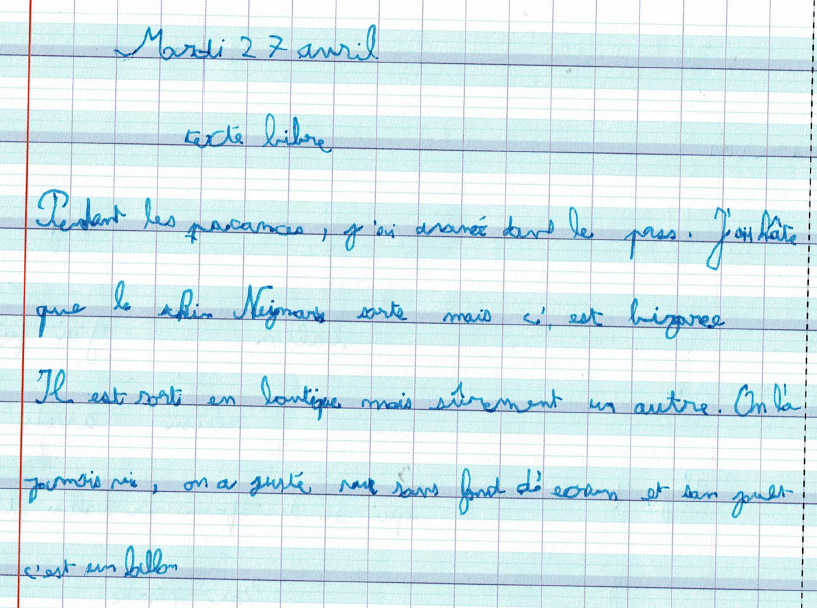 Mardi 27 avril
texte libre
Pendant les pacances, j'ai avancé dans le pass. J'ai hâte
que le skin Neymar sorte mais c'est bizaree
Il est sorti en boutique mais sûrement un autre. On l'a
jamais vu, on a juste sans fond d'écran et son jouet
c'est un ballon